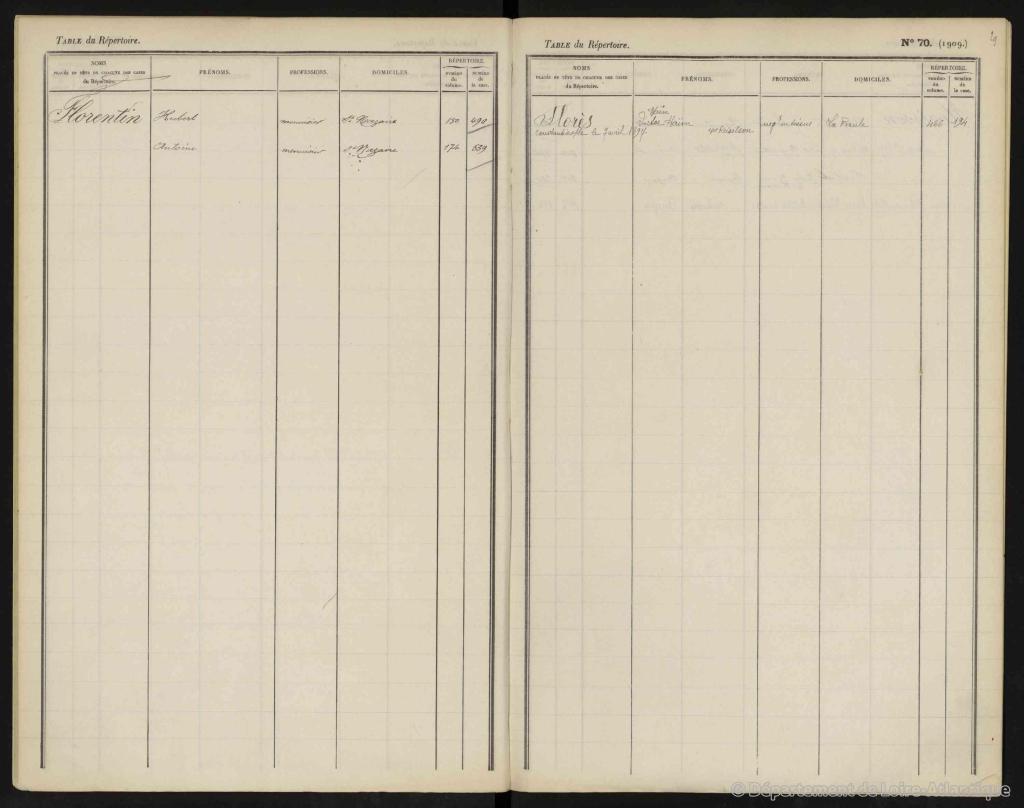 TABLE du Répertoire.
NOMS
PLACÉS EN TÊTE DE CHACUNE DES CASES
du Répertoire.
PRÉNOMS.
PROFESSIONS.
DOMICILES.
RÉPERTOIRE.
numéro du volume.
numéro de la case.
Florentin Hubert menuisier St Nazaire 150 490
Antoine menuisier St Nazaire 174 659
TABLE du Répertoire.
N° 70. (1909.)
NOMS
PLACÉS EN TÊTE DE CHACUNE DES CASES
du Répertoire.
PRÉNOMS.
PROFESSIONS.
DOMICILES.
RÉPERTOIRE.
numéro du volume.
numéro de la case.
Haïm
Florès Haïm La Baule 466 194
le 7 avril
© Département de Loire-Atlantique